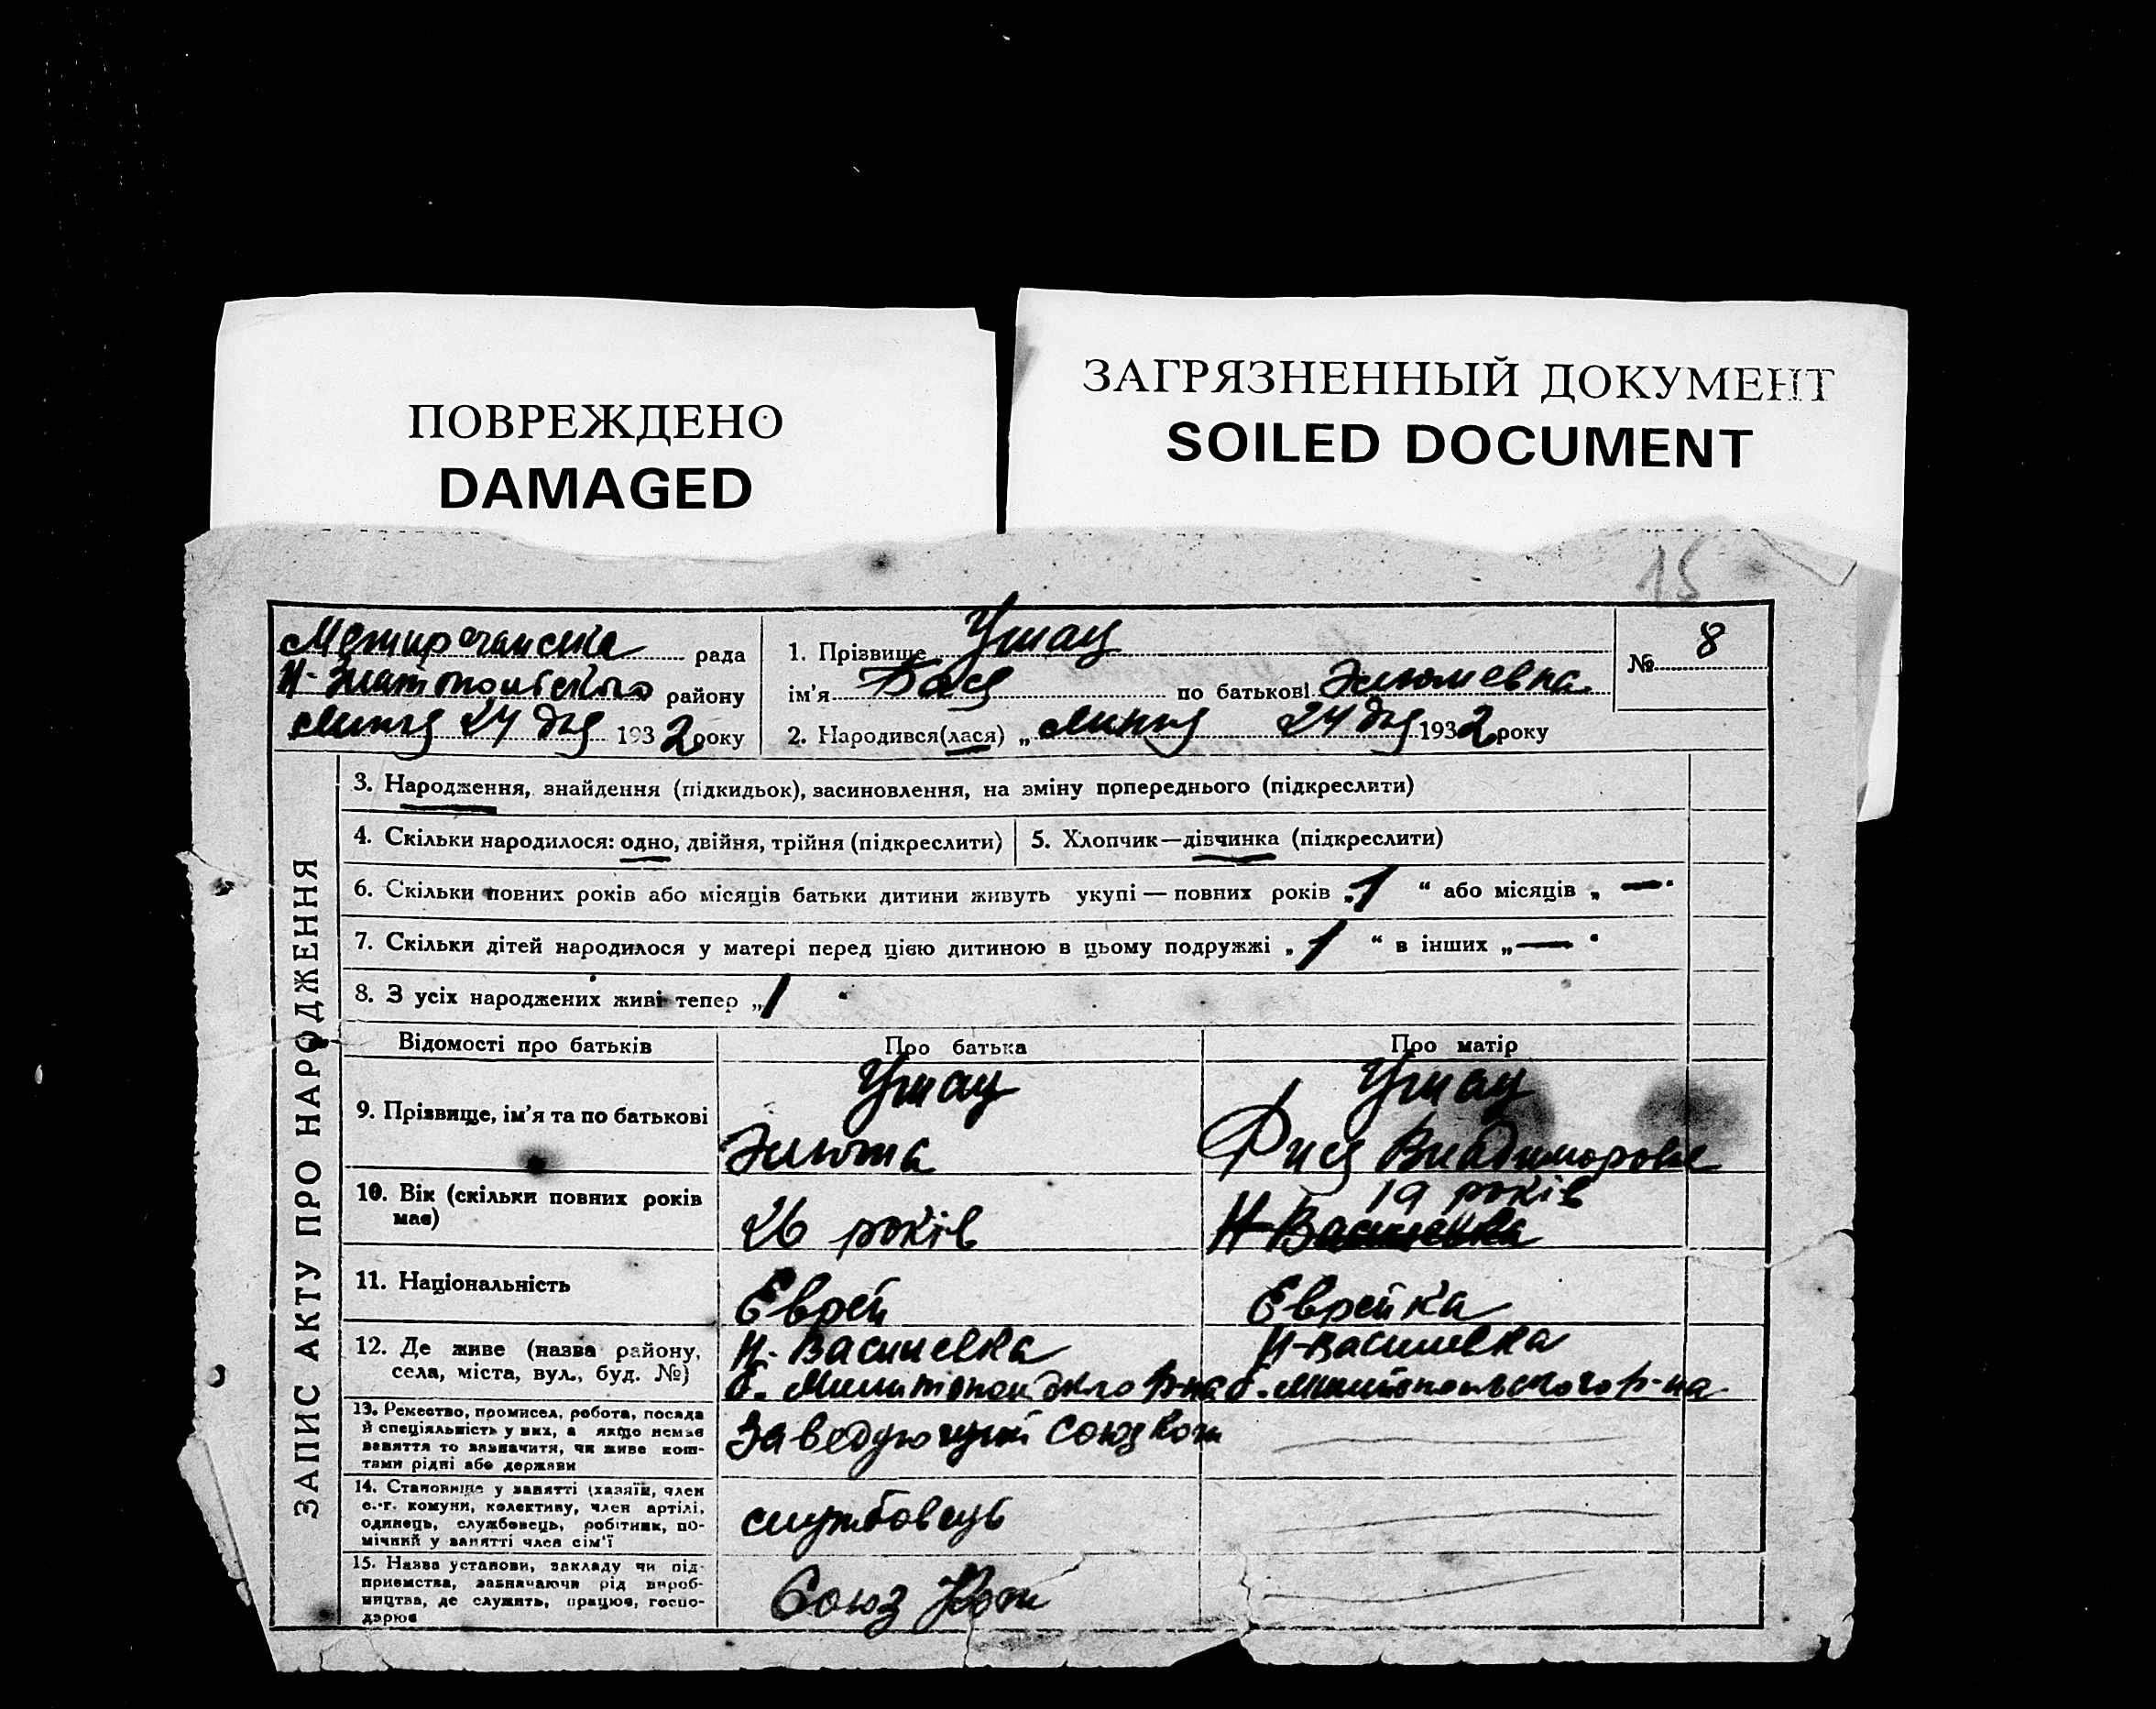 ПОВРЕЖДЕНО
DAMAGED
ЗАГРЯЗНЕННЫЙ ДОКУМЕНТ
SOILED DOCUMENT
15
рада
району
Липня 24 дня 1932 року
1. Прізвище Умац
ім'я Бася по батькові
2. Народився(лася) „ Липня 24 дня 1932 року
№ 8
ЗАПИС АКТУ ПРО НАРОДЖЕННЯ
3. Народження, знайдення (підкидьок), засиновлення, на зміну попереднього (підкреслити)
4. Скільки народилося: одно, двійня, трійня (підкреслити)
5. Хлопчик—дівчинка (підкреслити)
6. Скільки повних років або місяців батьки дитини живуть укупі — повних років „ 1 “ або місяців „ — “
7. Скільки дітей народилося у матері перед цією дитиною в цьому подружжі „ 1 “ в інших „ — “
8. З усіх народжених живі тепер „ 1 “
Відомості про батьків
Про батька
Про матір
9. Прізвище, ім'я та по батькові
Умац
Умац
10. Вік (скільки повних років
має)
26 років
19 років
Н-Василевка
11. Національність
Єврей
Єврейка
12. Де живе (назва району,
села, міста, вул., буд. №)
Н-Василевка
б. р-на
Н-Василевка
б. Мелітопольського р-на
13. Ремество, промисел, робота, посада
й спеціяльність у них, а якщо немає
заняття то зазначити, чи живе кош-
тами рідні або держави
Заведуючий
14. Становище у занятті (хазяїн, член
с.-г. комуни, колективу, член артілі,
одинець, службовець, робітник, по-
мічний у занятті член сім'ї
службовець
15. Назва установи, закладу чи під-
приємства, зазначаючи рід вироб-
ництва, де служить, працює, госпо-
дарює
Союз